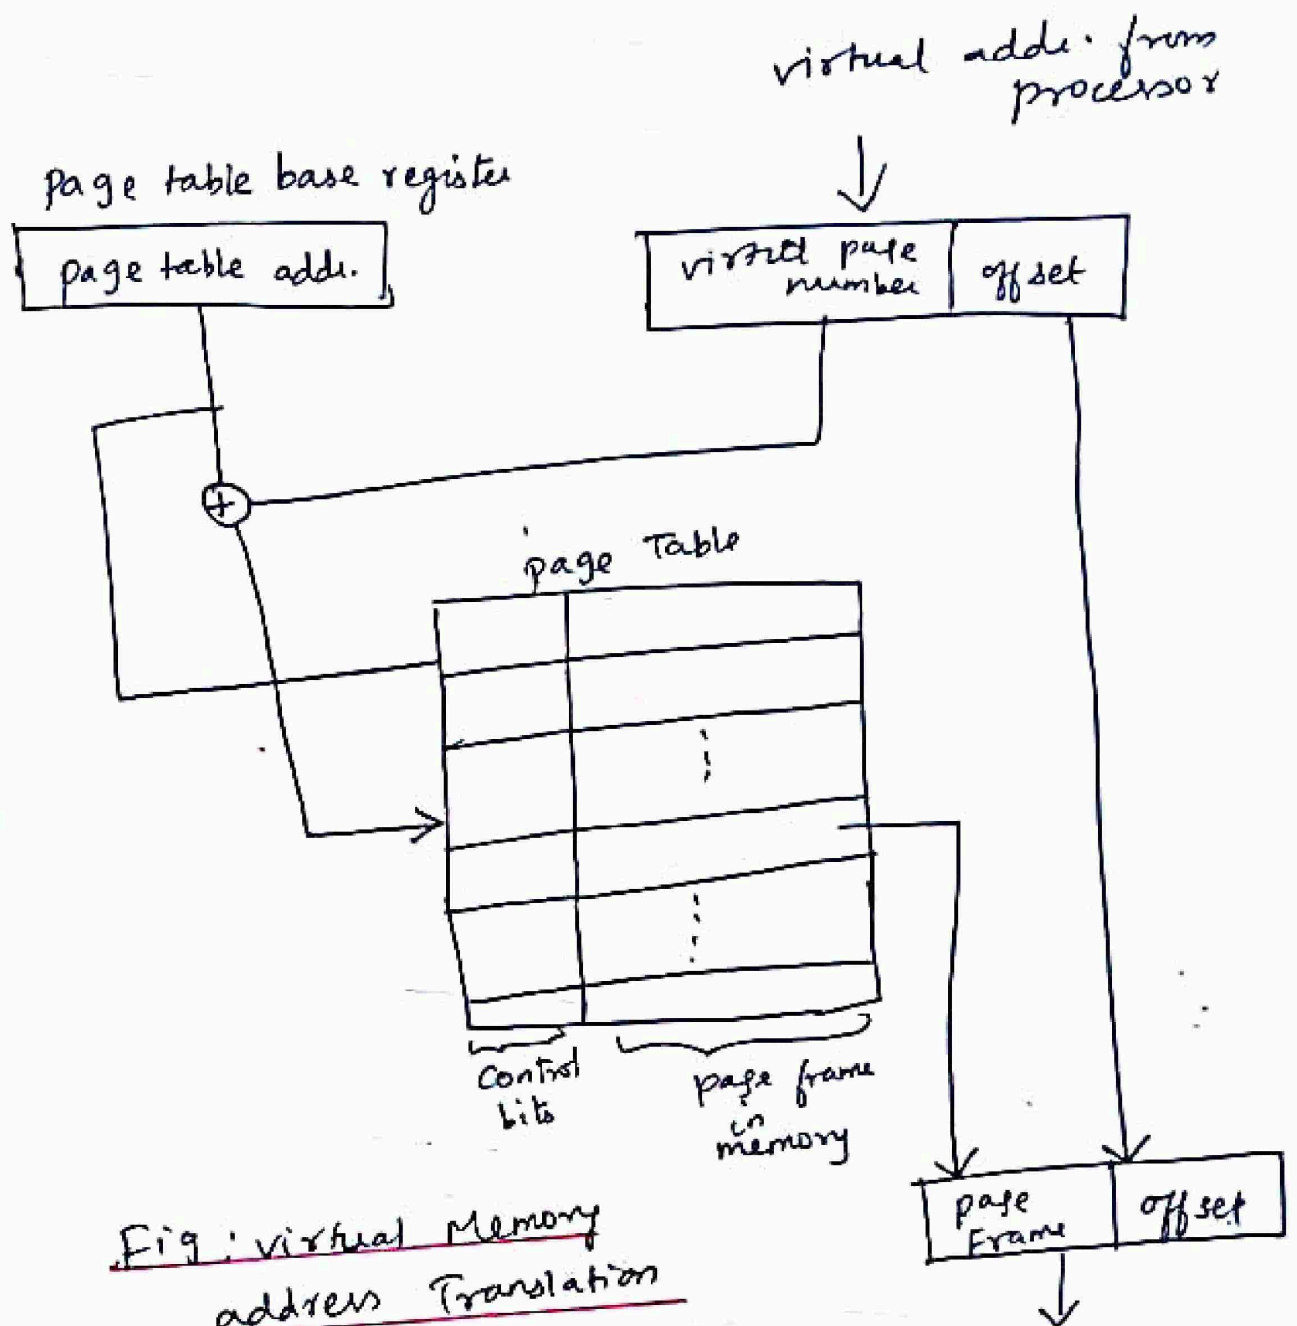 virtual addr. from
processor
Page table base register
page table addr.
virtual page
number
offset
+
page Table
Control
bits
page frame
in
memory
page
Frame
offset
Fig : virtual Memory
address Translation